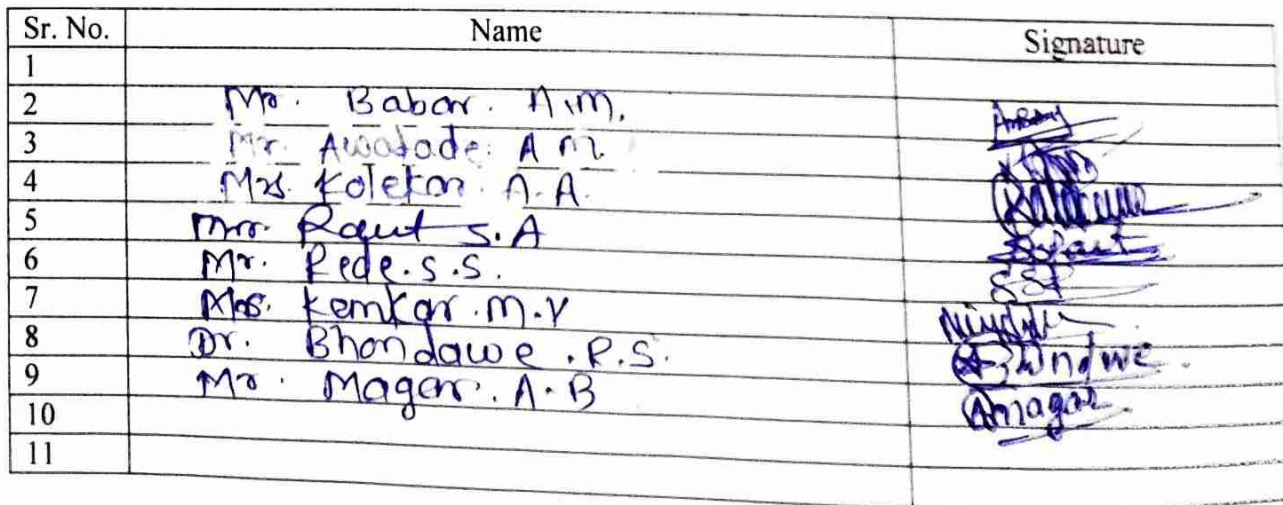 Sr. No. Name Signature
1
2 Mr. Babar. A.M.
3 Mr. Awatade. A M.
4 Mrs. Kolekar. A.A.
5 Mr. Raut S.A Raut
6 Mr. Pede.S.S. SSP
7 Mrs. Kemkar.M.V
8 Dr. Bhondawe.P.S.
9 Mr. Magar. A.B
10 Amagar
11